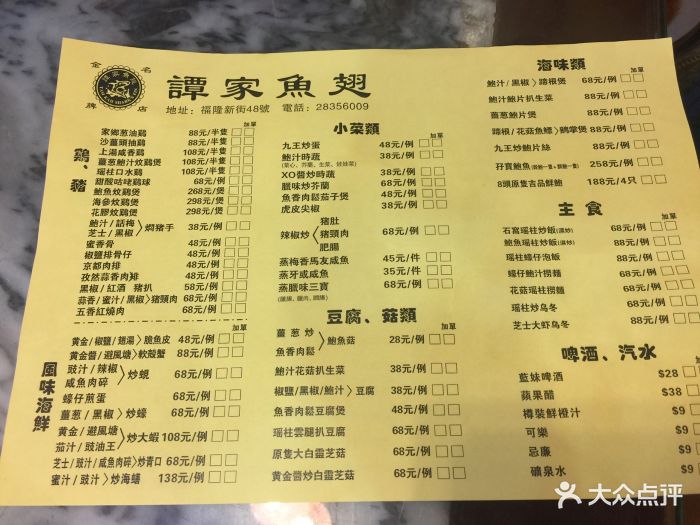 金 名
牌 店
譚家魚翅
地址：福隆新街48號 電話：28356009
鷄、豬
加單
家鄉葱油鷄 88元/半隻
沙薑頭抽鷄 88元/半隻
上湯咸香鷄 108元/半隻
薑葱鮑汁炆鷄 108元/半隻
瑶柱口水鷄 108元/半隻
甜酸咕咾鷄球 68元/例
鮑魚炆鷄煲 268元/煲
海參炆鷄煲 298元/煲
花膠炆鷄煲 298元/煲
鮑汁/話梅
芝士/黑椒〉焗豬手 38元/例
蜜香骨 48元/例
椒鹽排骨仔 48元/例
京都肉排 48元/例
孜然蒜香肉排 48元/例
黑椒/紅酒 豬扒 58元/例
蒜香/蜜汁/黑椒〉豬頸肉 68元/例
五香紅燒肉 68元/例
風味海鮮
加單
黃金/椒鹽/翅湯〉脆魚皮 48元/例
黃金醬/避風塘〉軟殼蟹 88元/例
豉汁/辣椒
咸魚肉碎〉炒蜆 68元/例
蠔仔煎蛋 68元/例
薑葱/黑椒〉炒蠔 68元/例
黃金/避風塘
茄汁/豉油王〉炒大蝦 108元/例
芝士/豉汁/咸魚肉碎〉炒青口 68元/例
蜜汁/豉汁〉炒海鱔 138元/例
小菜類
加單
九王炒蛋 48元/例
鮑汁時蔬 38元/例
(菜心、芥蘭、生菜、娃娃菜)
XO醬炒時蔬 38元/例
臘味炒芥蘭 38元/例
魚香肉鬆茄子煲 48元/例
虎皮尖椒 38元/例
辣椒炒〉
猪肚
猪頸肉 68元/例
肥腸
蒸梅香馬友咸魚 45元/件
蒸牙或咸魚 35元/件
蒸臘味三寶 68元/例
豆腐、菇類
加單
薑葱炒
魚香肉鬆〉鮑魚菇 28元/例
鮑汁花菇扒生菜 38元/例
椒鹽/黑椒/鮑汁〉豆腐 38元/例
魚香肉鬆豆腐煲 48元/例
瑶柱雲腿扒豆腐 68元/例
原隻大白靈芝菇 68元/例
黃金醬炒白靈芝菇 68元/例
海味類
加單
鮑汁/黑椒〉蹄根煲 68元/例
鮑汁鮑片扒生菜 88元/例
薑葱鮑片煲 88元/例
蹄根/花菇魚鰾〉鵝掌煲 88元/例
九王炒鮑片絲 88元/例
孖寶鮑魚 258元/例
8頭原隻吉品鮮鮑 188元/4只
主食
加單
石窩瑶柱炒飯(濕炒) 68元/例
鮑魚瑶柱炒飯(濕炒) 88元/例
瑶柱蠔仔泡飯 88元/例
蠔仔鮑汁撈麵 68元/例
花菇瑶柱撈麵 68元/例
瑶柱炒乌冬 68元/例
芝士大虾乌冬 88元/例
啤酒、汽水
加單
藍妹啤酒 $28
蘋果醋 $38
樽裝鮮橙汁 $9
可樂 $9
忌廉 $9
礦泉水 $9
大众点评